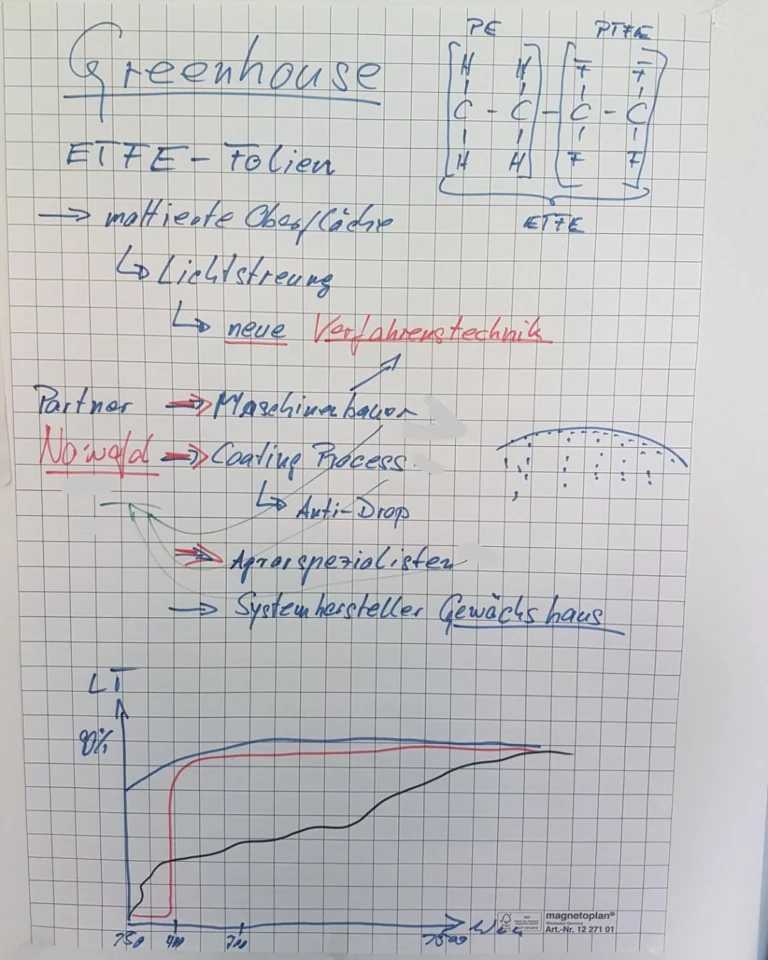 Greenhouse
PE PTFE
H H F F
C - C - C - C
H H F F
ETFE
ETFE - Folien
→ mattierte Oberfläche
↳ Lichtstreuung
↳ neue Verfahrenstechnik
Partner ⇒ Maschinenbauer
Nowald ⇒ Coating Process
↳ Anti-Drop
⇒ Agrarspezialisten
→ Systemhersteller Gewächshaus
LT
90%
250 400 700
magnetoplan®
Art.-Nr. 12 271 01